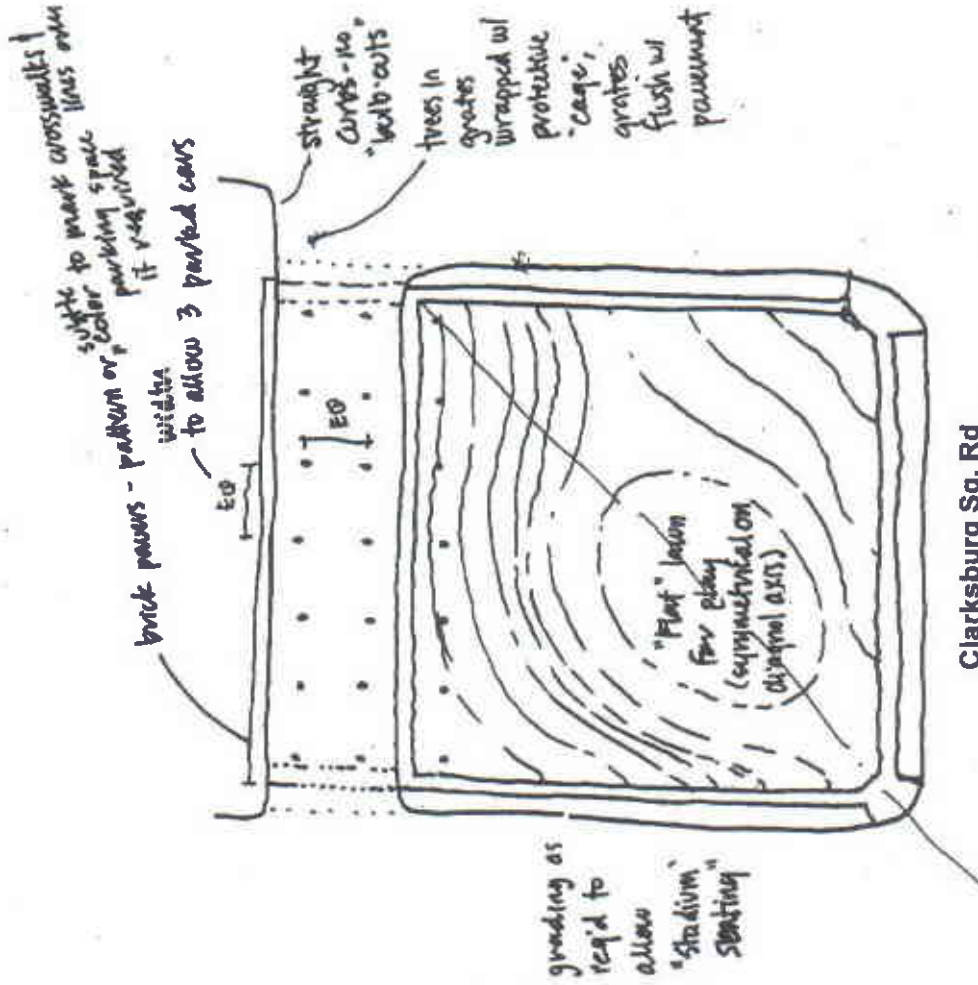 brick pavers - pattern or
color to mark crosswalks &
parking space lines only
if required
width
to allow 3 parked cars
EQ
EQ
straight
curbs - no
"bulb-outs"
trees in
grates
wrapped w/
protective
"cage",
grates
flush w/
pavement
"Flat" lawn
for play
(symmetrical on
diagnol axis)
grading as
req'd to
allow
"stadium"
seating"
Clarksburg Sq. Rd